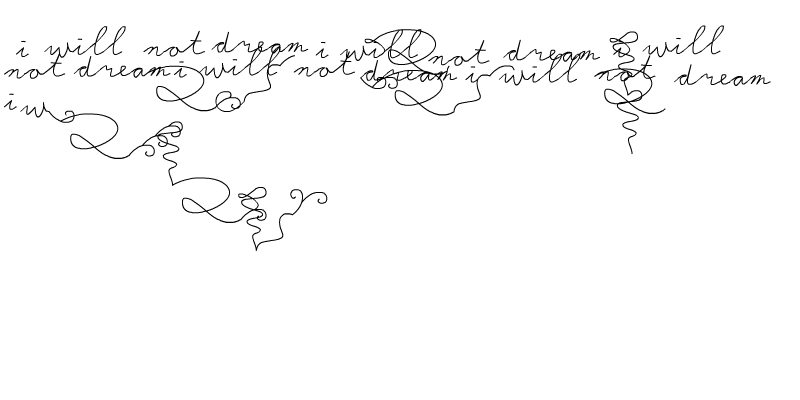 i will not dream i will not dream i will
not dream i will not dream i will not dream
i w